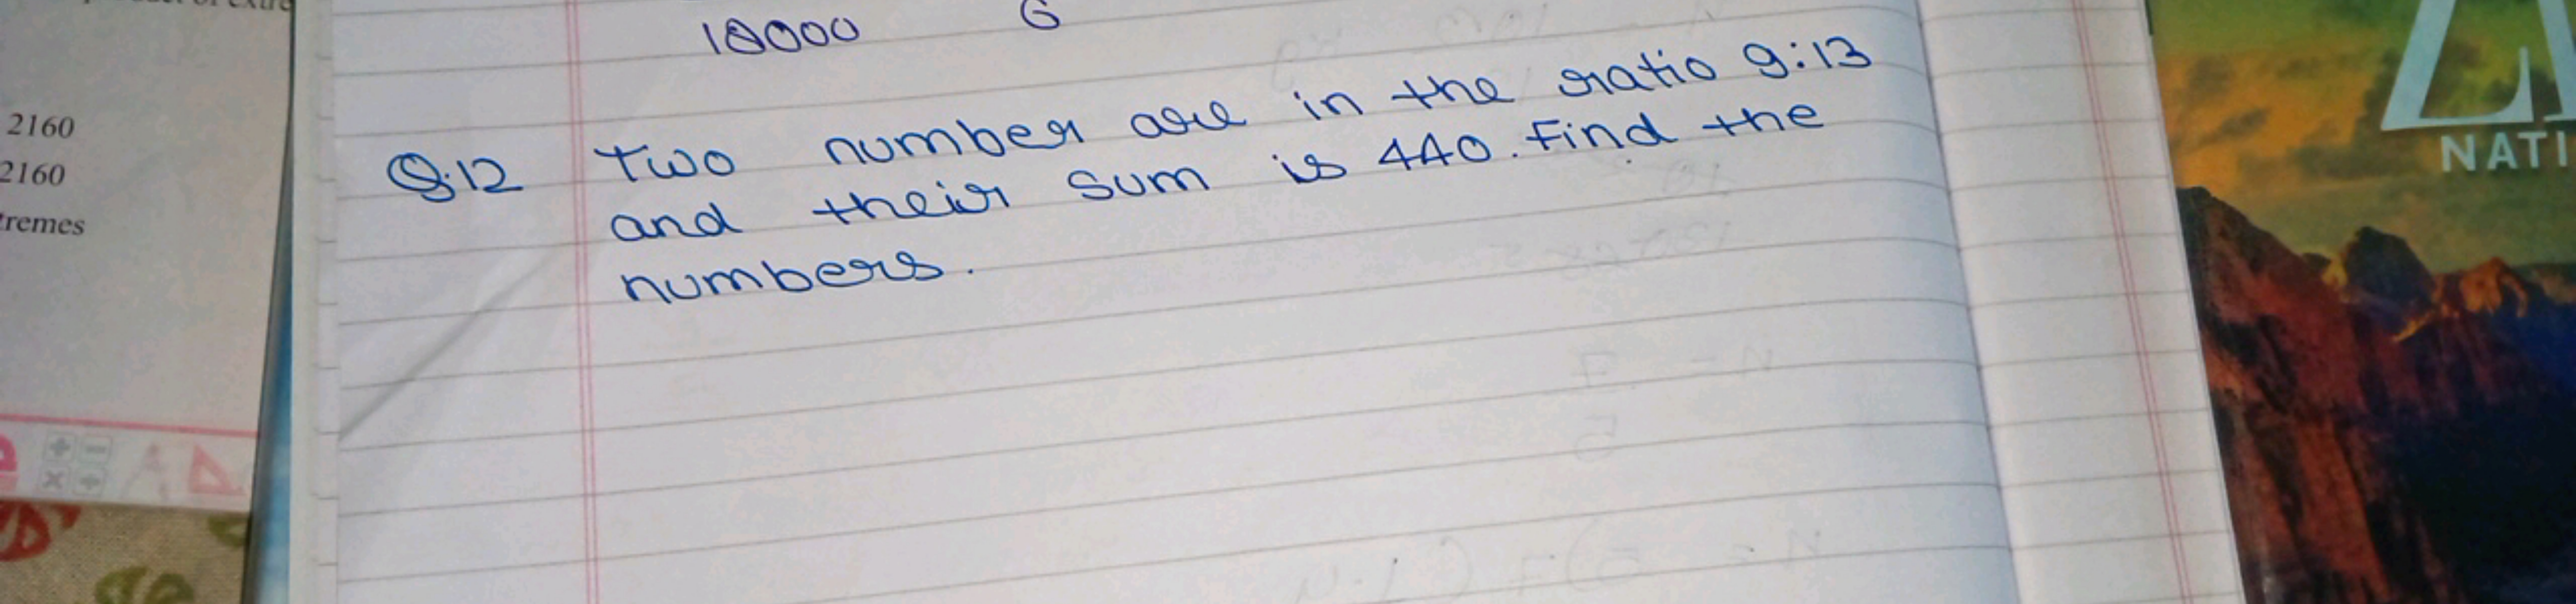 2160
2160
tremes
18000 6
Q.12 Two number are in the ratio 9:13
and their sum is 440. Find the
numbers.
NATI